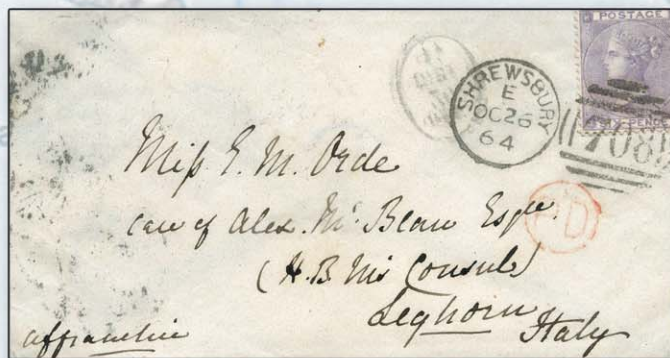 POSTAGE
SIX PENCE
SHREWSBURY
E
OC 26
64
708
PD
Miss E. M. Orde
care of Alex. Mc. Bean Esqre.
(H.B.Ms Consul)
Leghorn
Italy
affranchie